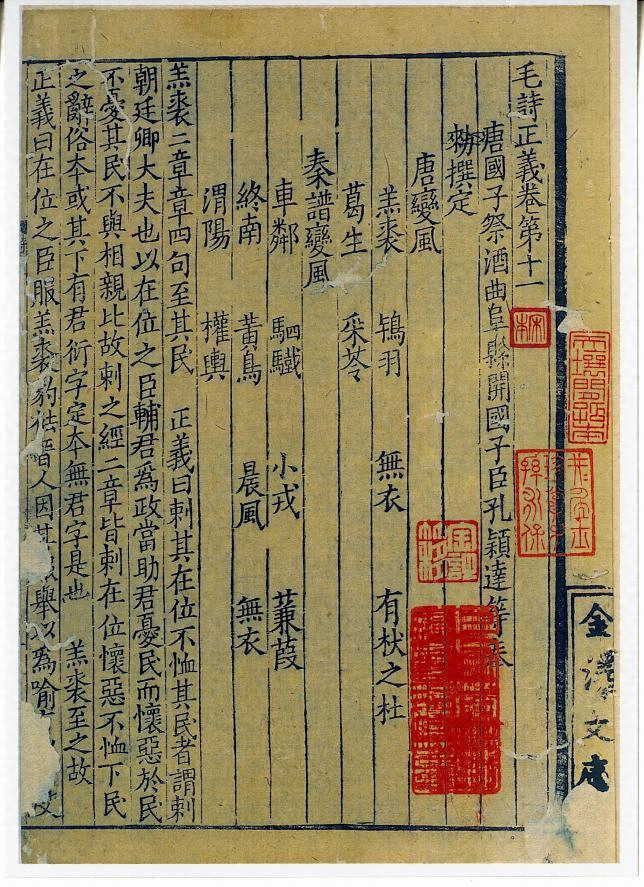 毛詩正義卷第十一
唐國子祭酒曲阜縣開國子臣孔穎達等奉
勑撰定
唐變風
羔裘 鴇羽 無衣 有杕之杜
葛生 采苓
秦譜變風
車鄰 駟驖 小戎 蒹葭
終南 黃鳥 晨風 無衣
渭陽 權輿
羔裘二章章四句至其民 正義曰刺其在位不恤其民者謂刺
朝廷卿大夫也以在位之臣輔君為政當助君憂民而懷惡於民
不憂其民不與相親比故刺之經二章皆刺在位懷惡不恤下民
之辭俗本或其下有君衍字定本無君字是也 羔裘至之故
正義曰在位之臣服羔裘豹袪晉人因其服舉以為喻
金澤文庫